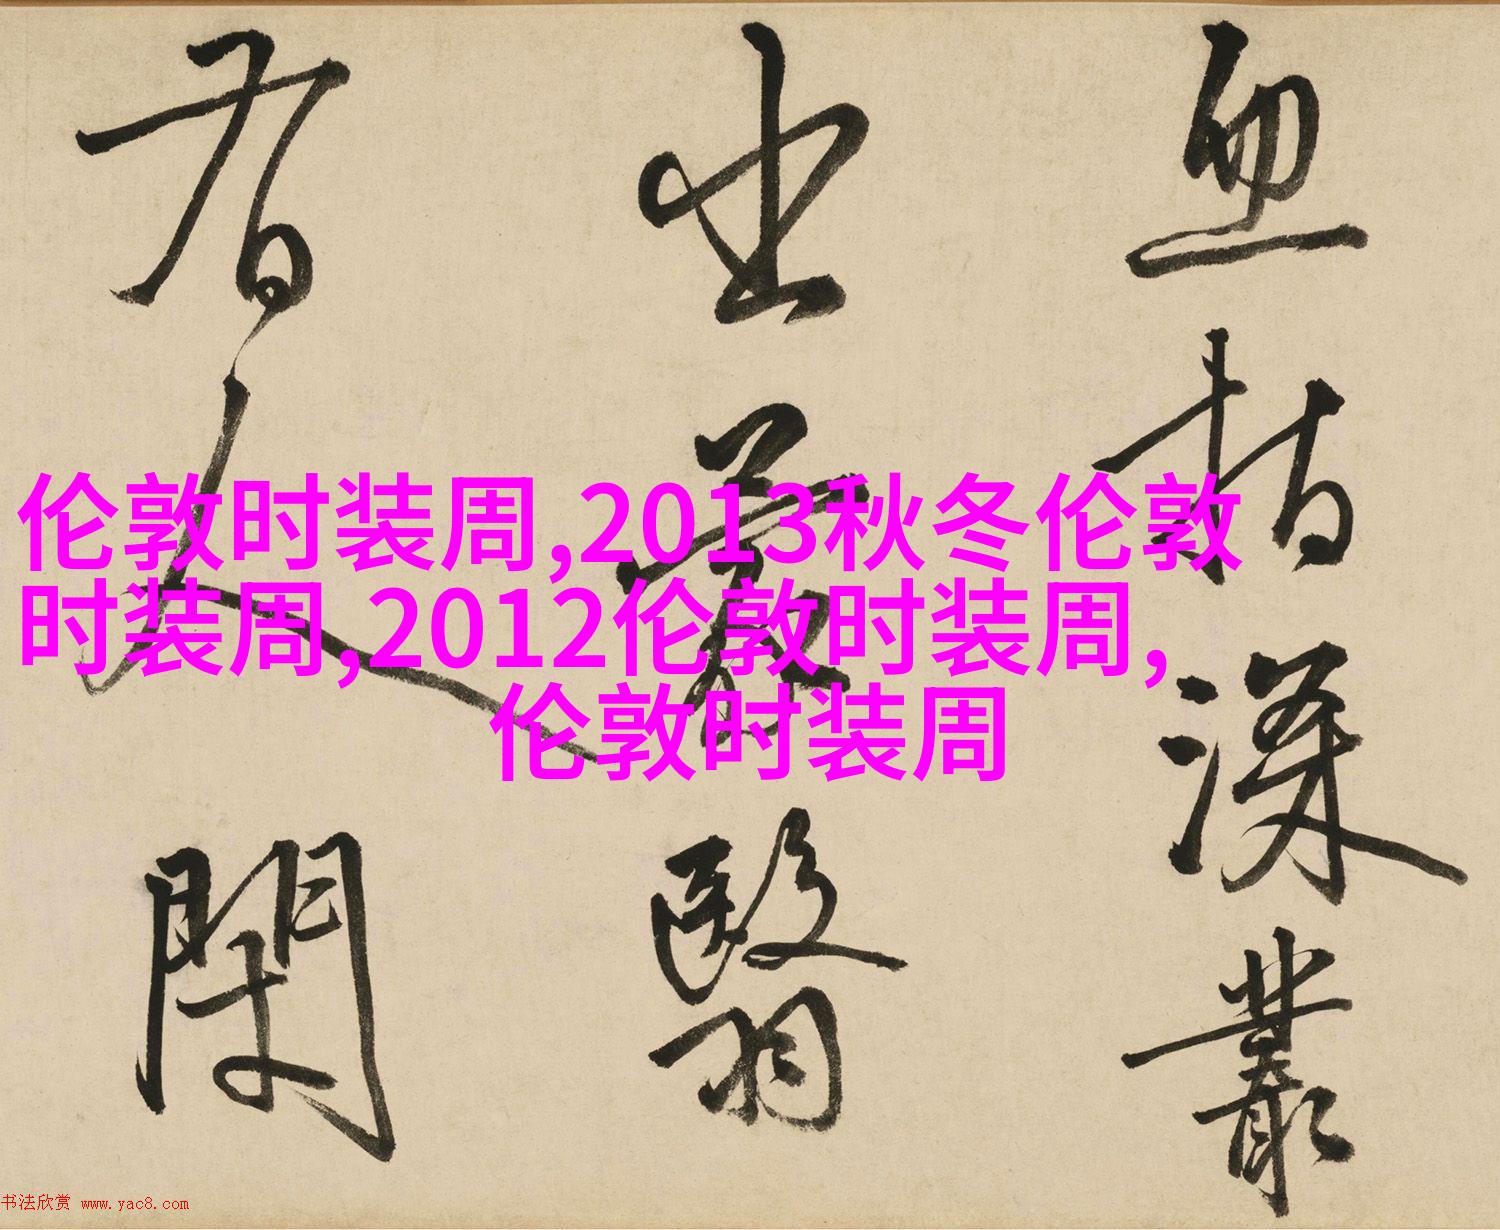 伦敦时装周,2013秋冬伦敦
时装周,2012伦敦时装周,
伦敦时装周
指深叢
出蒙翳
人
书法欣赏 www.yac8.com